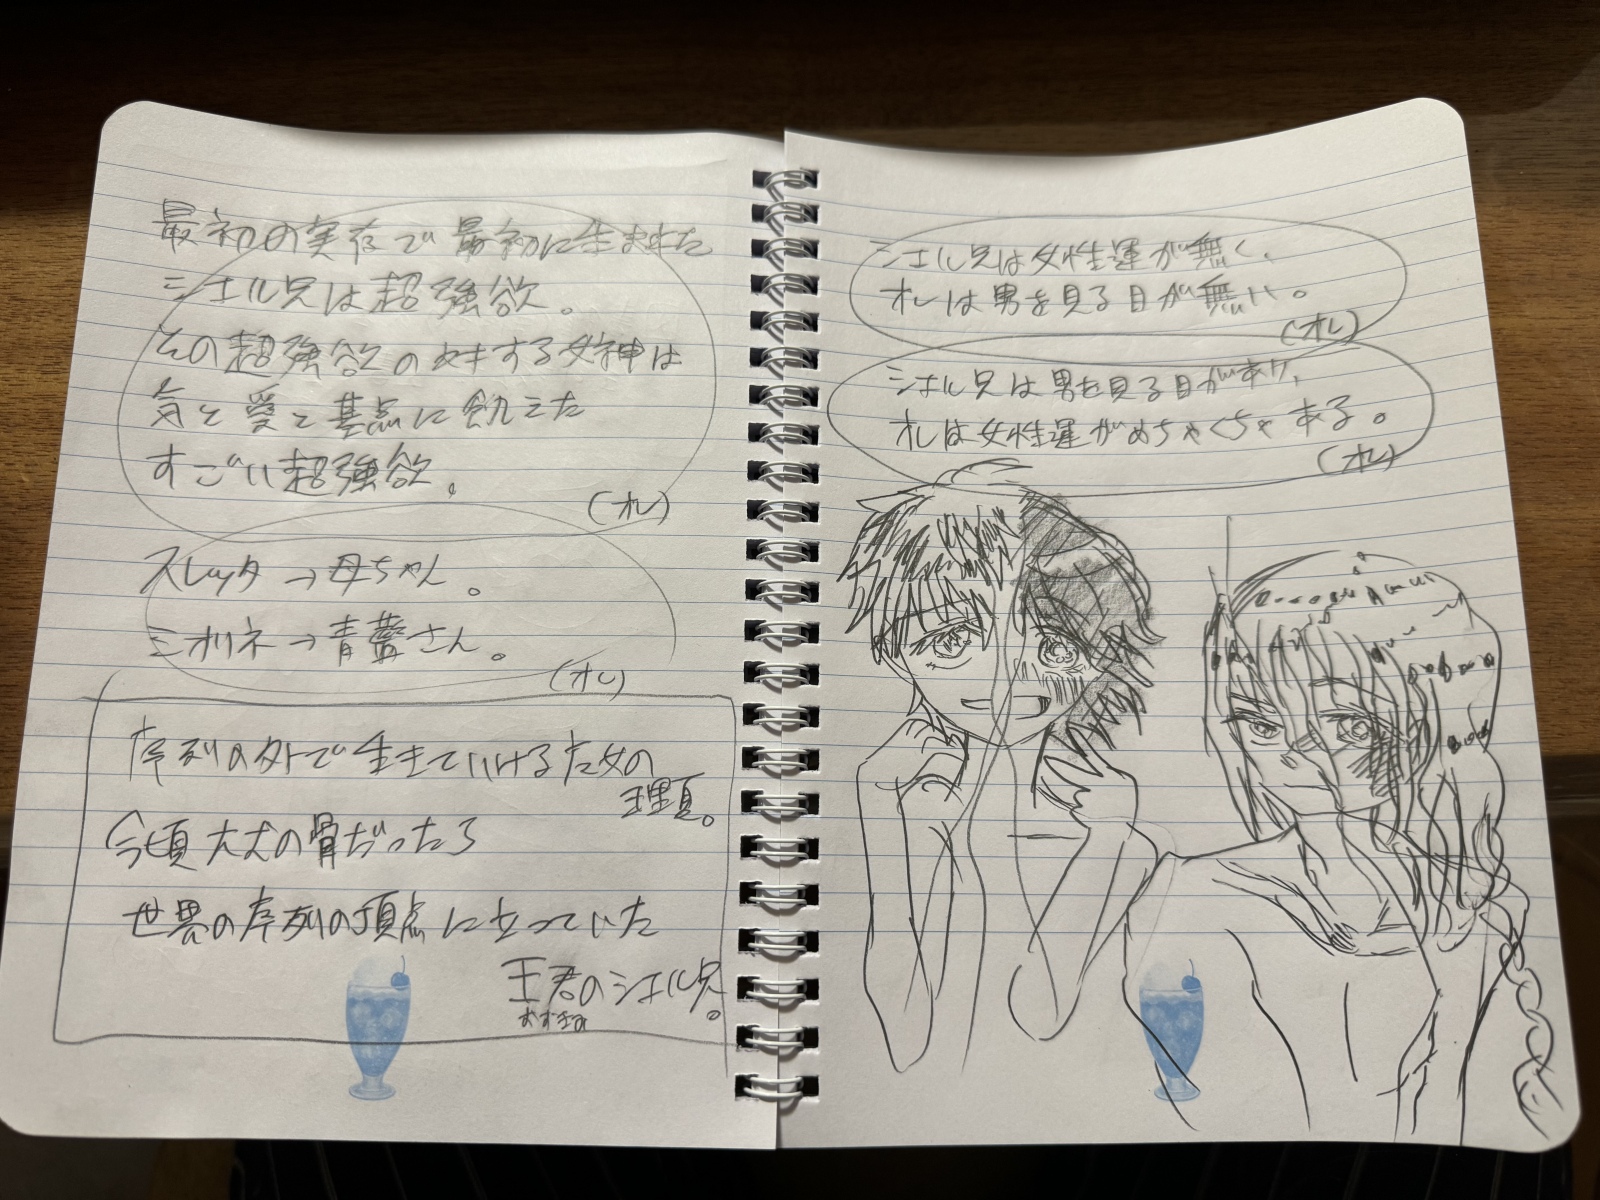 最初の実存で最初に生まれた
シエル兄は超強欲。
その超強欲の対する女神は
気と愛と基点に飢えた
すごい超強欲。
(オレ)
スレッタ→母ちゃん。
ミオリネ→青薔さん。
(オレ)
序列の外で生きていける女の
理夏。
今頃大丈の骨だったろ
世界の序列の頂点に立っていた
王君のシエル兄。
おおきみ
シエル兄は女性運が無く、
オレは男を見る目が無い。
(オレ)
シエル兄は男を見る目が有り、
オレは女性運がめちゃくちゃ有る。
(オレ)